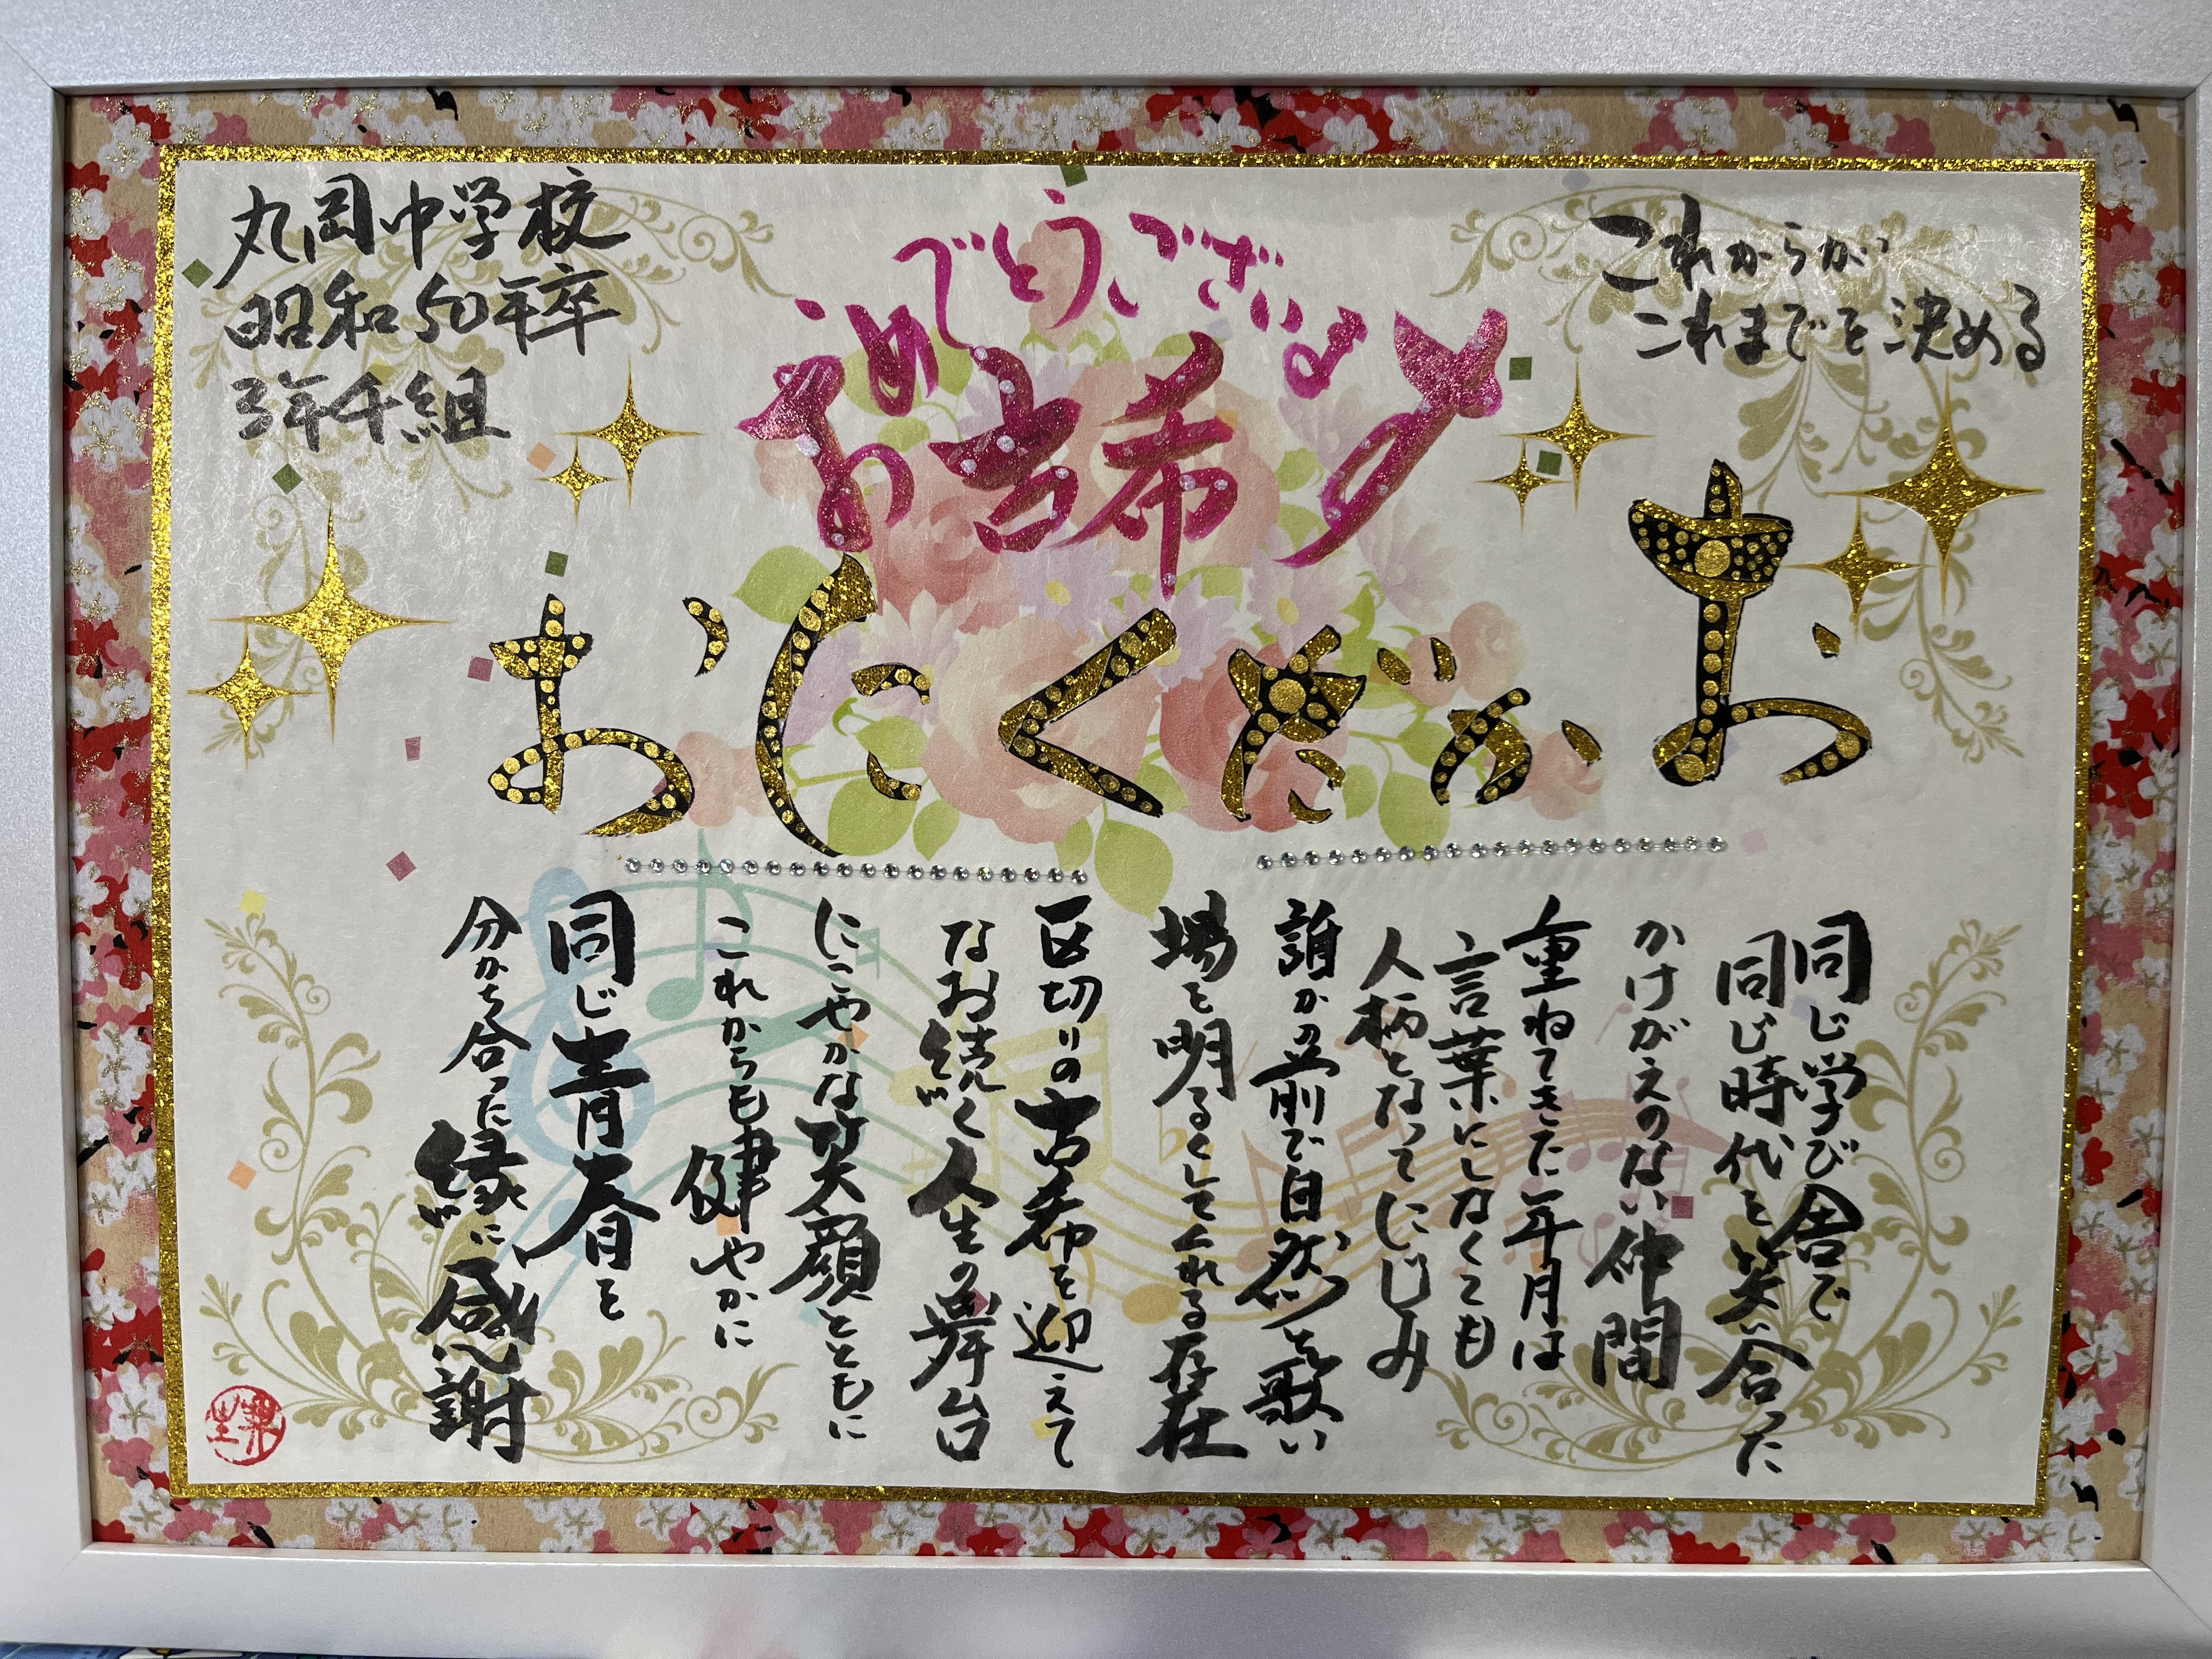 これからが
これまでを決める
丸岡中学校
昭和50年卒
3年千組
おめでとうございます
古希
おかだくにお
同じ学び舎で
同じ時代を笑い合った
かけがえのない仲間
重ねてきた年月は
言葉にしなくても
人柄となってにじみ
誰かの前で自然と歌い
場を明るくしてくれる存在
区切りの古希を迎えて
なお続く人生の舞台
にこやかな笑顔とともに
これからも健やかに
同じ青春を
分かち合った縁に感謝